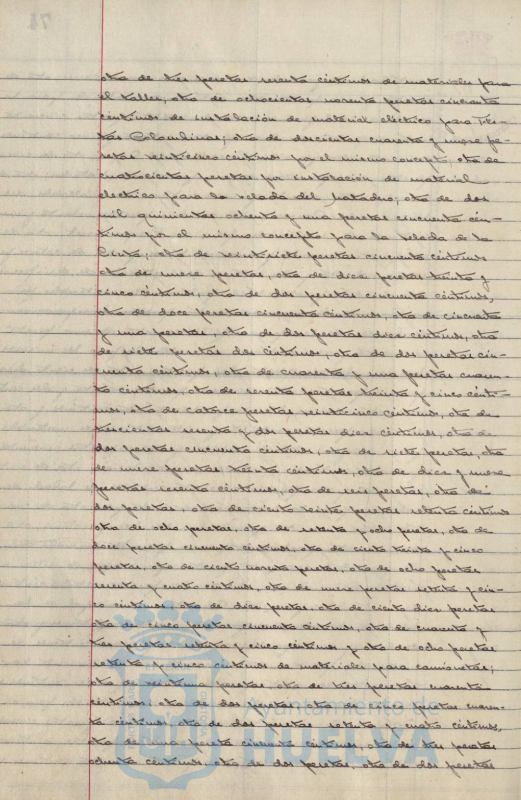 otra de tres pesetas sesenta céntimos de materiales para
el taller, otra de ochocientas noventa pesetas cincuenta
céntimos de instalación de material eléctrico para Fies-
tas Colombinas; otra de doscientas cuarenta y nueve pe-
setas veinticinco céntimos por el mismo concepto, otra de
cuatrocientas pesetas por instalación de material
electrico para la velada del Matadero; otra de dos
mil quinientas ochenta y una pesetas cincuenta cén-
timos por el mismo concepto para la velada de la
Cinta; otra de veintisiete pesetas cincuenta céntimos
otra de nueve pesetas, otra de diez pesetas treinta y
cinco céntimos, otra de dos pesetas cincuenta céntimos,
otra de doce pesetas cincuenta céntimos, otra de cincuenta
y una pesetas, otra de dos pesetas diez céntimos, otra
de siete pesetas dos céntimos, otra de dos pesetas cin-
cuenta céntimos, otra de cuarenta y una pesetas cuaren-
ta céntimos, otra de setenta pesetas treinta y cinco cénti-
mos, otra de catorce pesetas veinticinco céntimos, otra de
trescientas sesenta y dos pesetas diez céntimos, otra de
dos pesetas cincuenta céntimos, otra de siete pesetas, otra
de nueve pesetas treinta céntimos, otra de diez y nueve
pesetas sesenta céntimos, otra de seis pesetas, otra de
dos pesetas, otra de ciento veinte pesetas setenta céntimos
otra de ocho pesetas, otra de setenta y ocho pesetas, otra de
doce pesetas cincuenta céntimos, otra de ciento treinta y cinco
pesetas, otra de ciento noventa pesetas, otra de ocho pesetas
sesenta y cuatro céntimos, otra de nueve pesetas setenta y cin-
co céntimos, otra de diez pesetas, otra de ciento diez pesetas
otra de cinco pesetas cincuenta céntimos, otra de cuarenta y
tres pesetas setenta y cinco céntimos y otra de ocho pesetas
setenta y cinco céntimos de materiales para camionetas;
otra de veintiuna pesetas, otra de tres pesetas noventa
céntimos, otra de dos pesetas, otra de pesetas cuaren-
ta céntimos otra de dos pesetas setenta y cuatro céntimos,
otra de una peseta cincuenta céntimos, otra de tres pesetas
ochenta céntimos, otra de dos pesetas, otra de dos pesetas
Ayuntamiento de
HUELVA